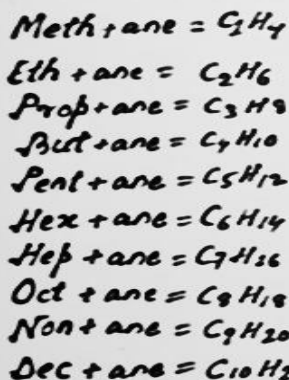 Meth + ane = C1H4
Eth + ane = C2H6
Prop + ane = C3H8
But + ane = C4H10
Pent + ane = C5H12
Hex + ane = C6H14
Hep + ane = C7H16
Oct + ane = C8H18
Non + ane = C9H20
Dec + ane = C10H2